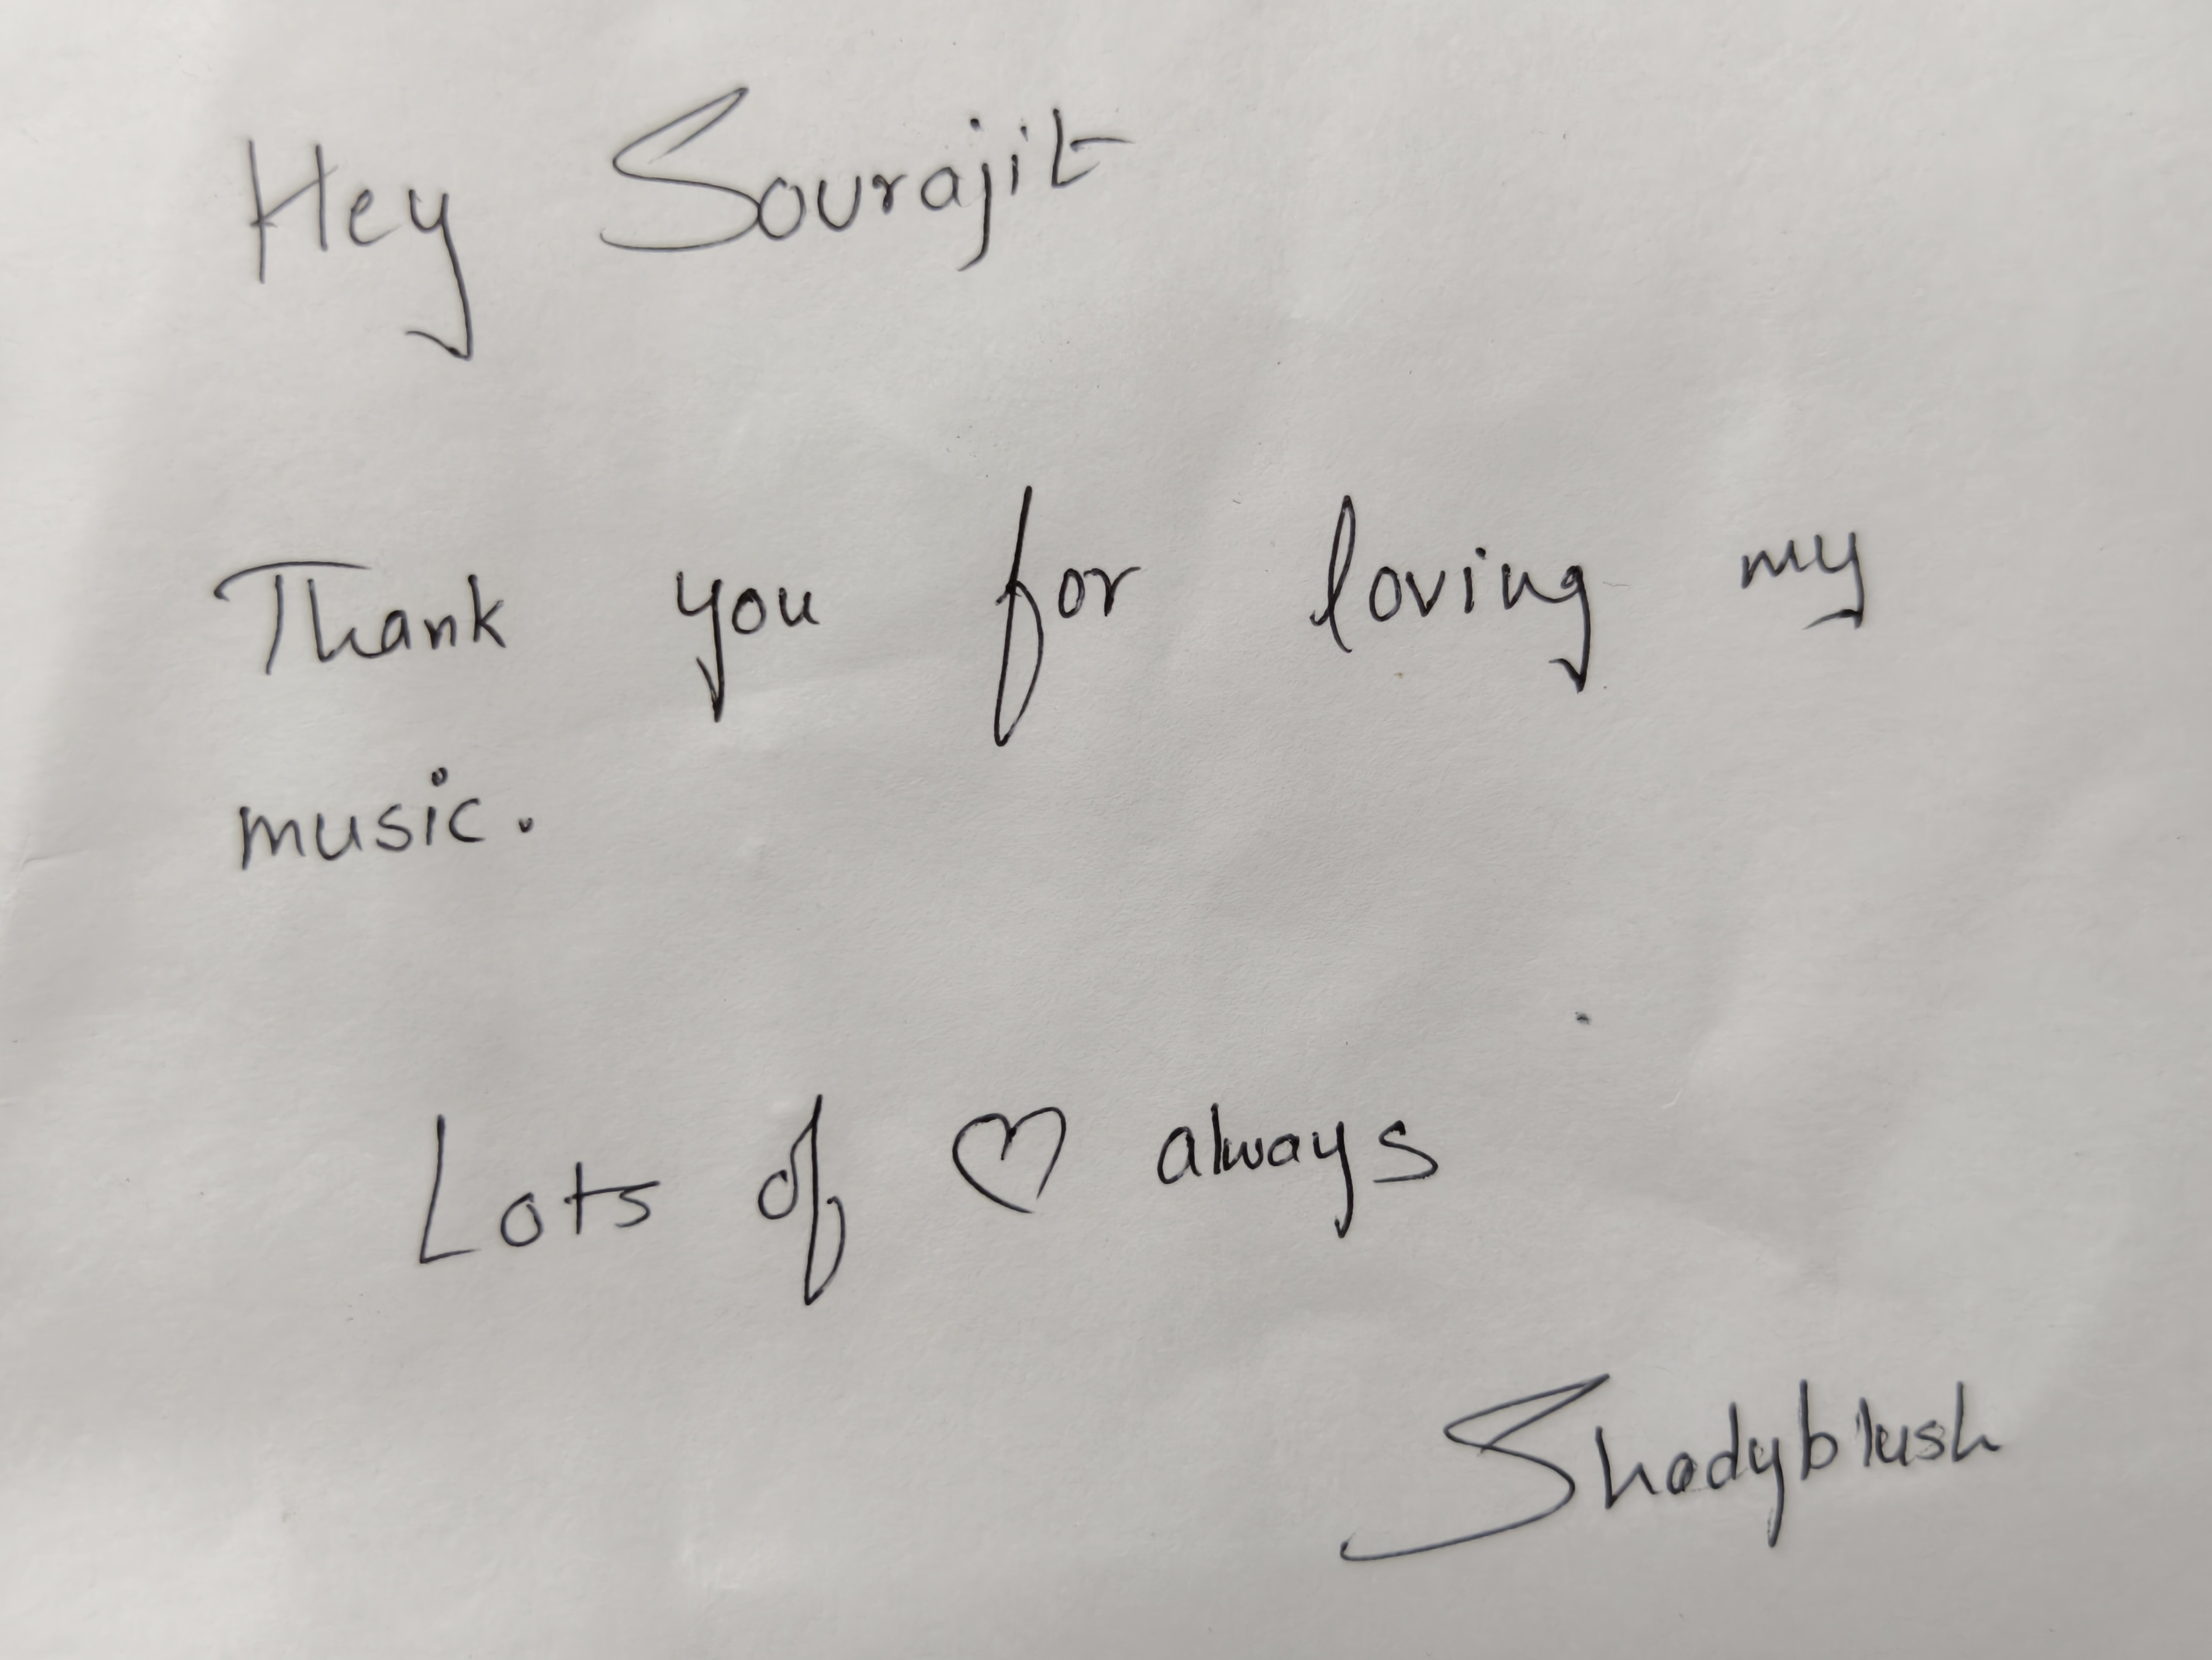 Hey Sourajit
Thank you for loving my
music.
Lots of ♡ always
Shadyblush